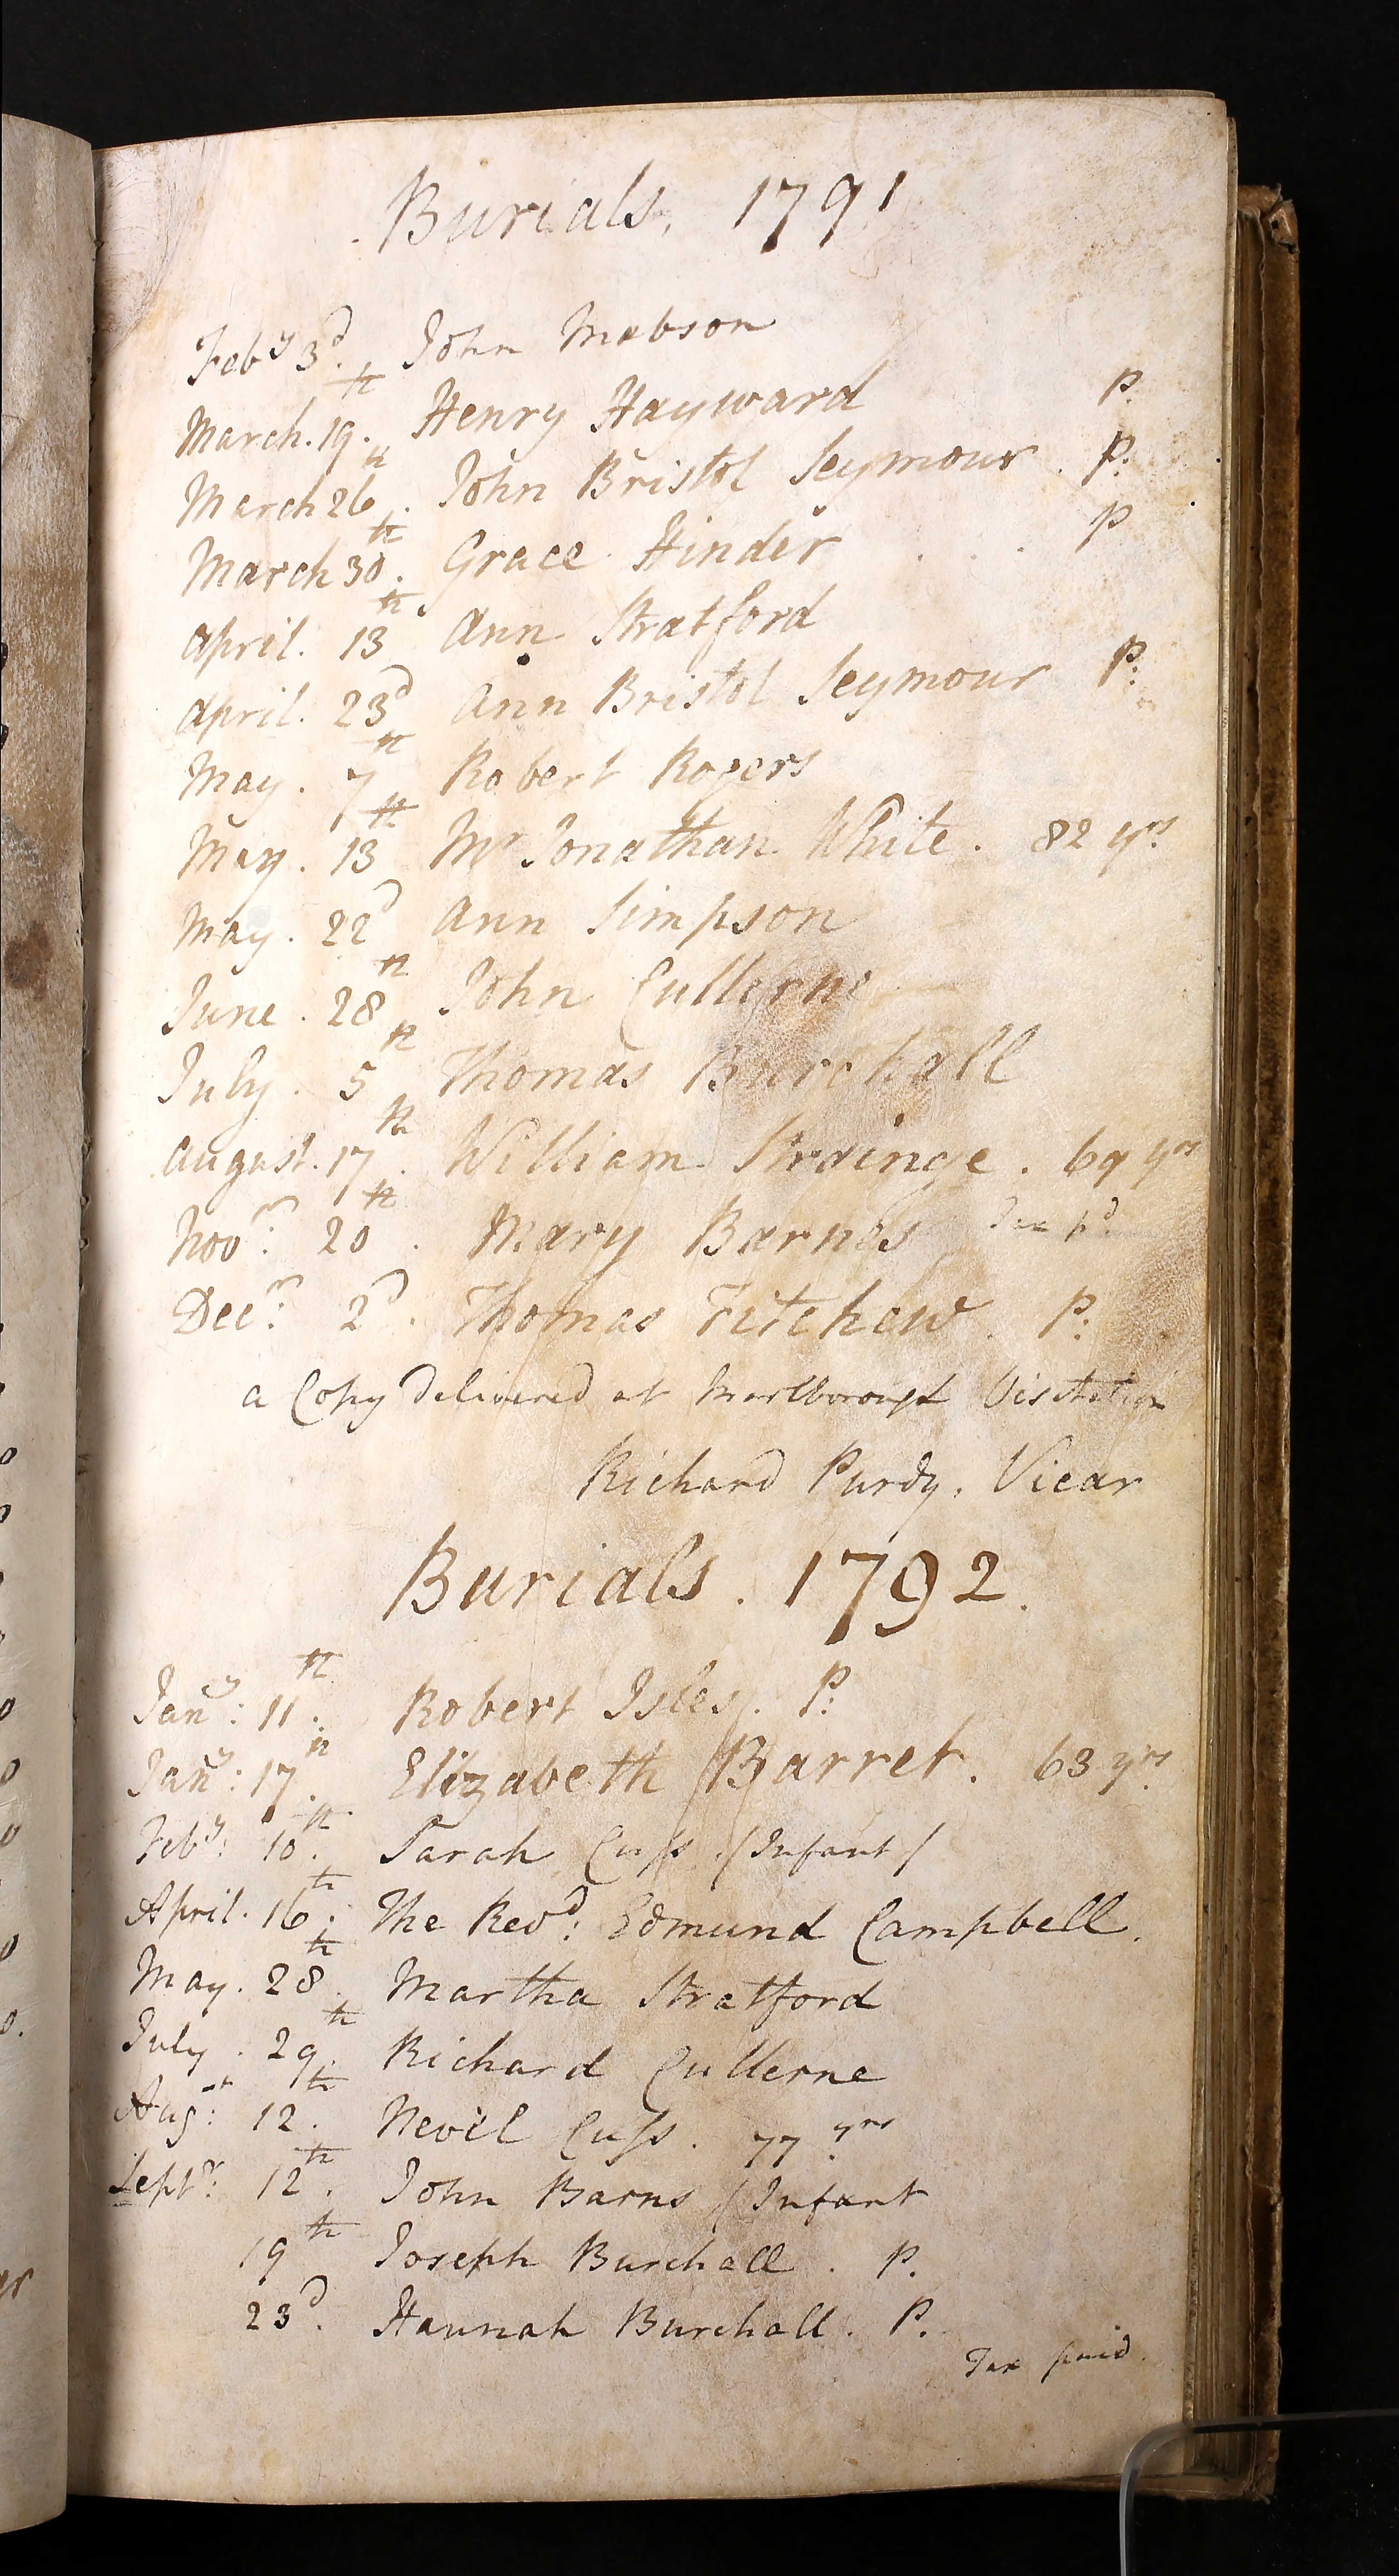 Burials, 1791
Feby 3d. John Mabson
March. 19th. Henry Hayward P.
March 26th. John Bristol Seymour. P:
March 30th. Grace Hinder . . . P
April. 13th Ann Stratford
April. 23d Ann Bristol Seymour P:
May. 7th Robert Rogers
May. 13th Mr Jonathan White. 82 yrs
May. 22d Ann Simpson
June. 28th John Cullerne
July. 5th Thomas Burchall
August. 17th. William Strainge. 69 yrs
Novr: 20th. Mary Barnes Tax pd.
Decr: 2d. Thomas Fitchew. P:
a Copy delivered at Marlborough Visitation
Richard Purdy, Vicar
Burials. 1792.
Jany: 11th. Robert Isles. P:
Jany: 17th. Elizabeth Barret. 63 yrs
Feby: 10th. Sarah Cuss /Infant/
April. 16th. The Revd: Edmund Campbell.
May. 28th. Martha Stratford
July. 29th. Richard Cullerne
Augst: 12th. Nevil Cuss. 77 yrs
Septr: 12th. John Barns /Infant
19th Joseph Burchall. P.
23d. Hannah Burchall. P.
Tax paid.